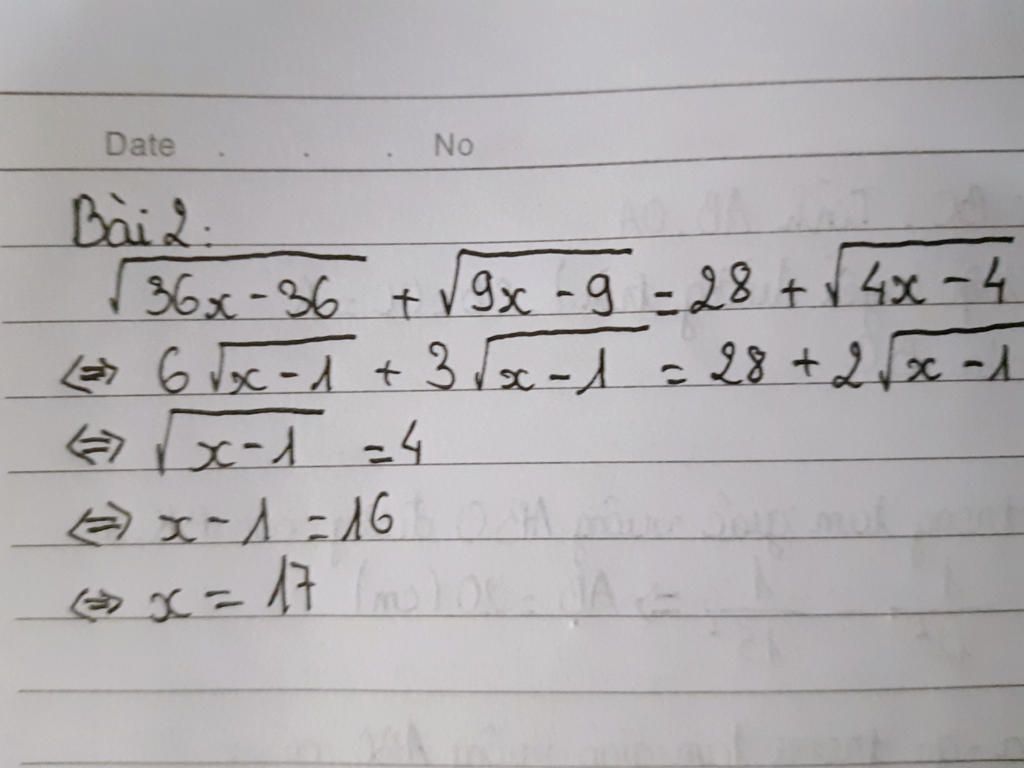 Date . . . No
Bài 2:
√(36x - 36) + √(9x - 9) = 28 + √(4x - 4)
⇔ 6√(x - 1) + 3√(x - 1) = 28 + 2√(x - 1)
⇔ √(x - 1) = 4
⇔ x - 1 = 16
⇔ x = 17